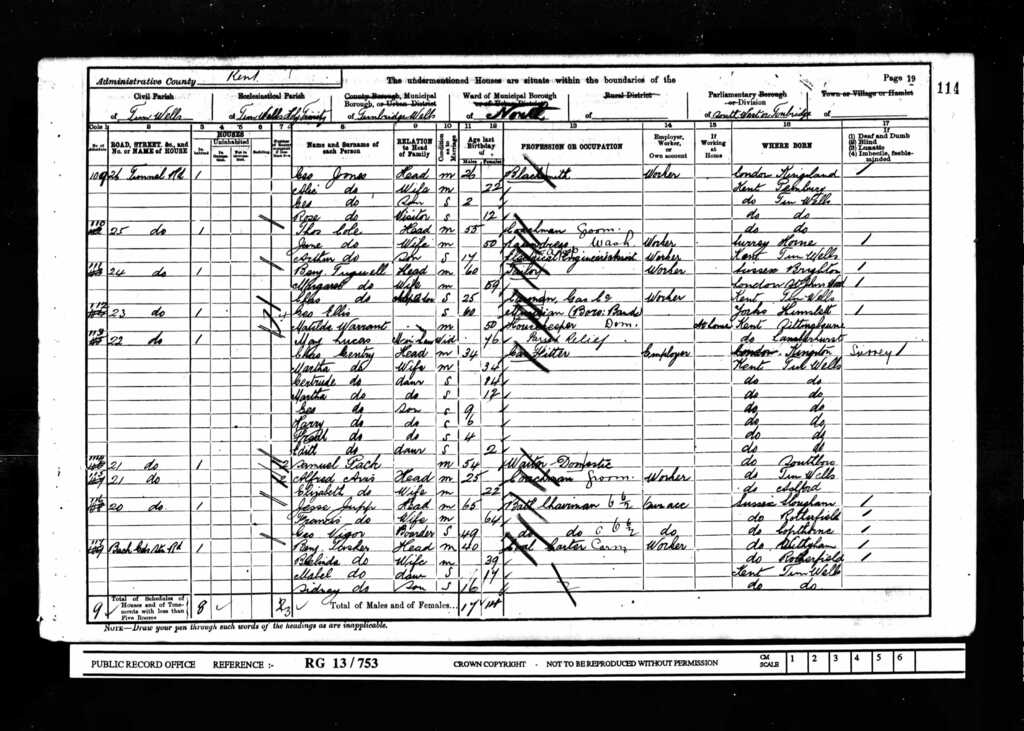 Administrative County Kent
The undermentioned Houses are situate within the boundaries of the
Page 19
114
Civil Parish
of Tun Wells
Ecclesiastical Parish
of Tun Wells Holy Trinity
County Borough, Municipal Borough, or Urban District
of Tunbridge Wells
Ward of Municipal Borough or of Urban District
of North
Rural District
of
Parliamentary Borough or Division
of South West or Tonbridge
Town or Village or Hamlet
of
Cols. 1 2 3 4 5 6 7 8 9 10 11 12 13 14 15 16 17
No. of Schedule
ROAD, STREET, &c., and No. or NAME of HOUSE
HOUSES
Inhabited
Uninhabited
In Occupation
Not in Occupation
Building
Name and Surname of each Person
RELATION to Head of Family
Condition as to Marriage
Age last Birthday of
Males Females
PROFESSION OR OCCUPATION
Employer, Worker, or Own account
If Working at Home
WHERE BORN
If
(1) Deaf and Dumb
(2) Blind
(3) Lunatic
(4) Imbecile, feeble-minded
109 26 Tunnel Rd 1 Geo Jones Head m 26 Blacksmith Worker London Kingsland 1
do Wife m 22 Kent Pembury
Geo do Son S 2 do Tun Wells
Rose do Visitor S 12 do do
110 25 do 1 Thos Cole Head m 55 Coachman Groom do do
Jane do Wife m 50 Laundress Wash Worker Surrey Horne 1
Arthur do Son S 17 Electrical Engineer Worker Kent Tun Wells
111 24 do 1 Benj. Tugwell Head m 60 Tailor Worker Sussex Brighton 1
Margaret do Wife m 59 London St John Wood 1
do S 25 Carman, Gas Co Worker Kent Tun Wells
112 23 do 1 Geo Ellis S 60 Musician (Boro: Band) Yorks 1
Matilda Warrant m 50 Housekeeper Dom. At home Kent Sittingbourne
113 22 do 1 May Lucas Wid 76 Parish Relief do Lamberhurst
Chas Gentry Head m 34 Gas Fitter Employer London Kingston Surrey 1
Martha do Wife m 34 Kent Tun Wells
Gertrude do daur S 14 do do
Martha do do S 12 do do
Geo do Son S 9 do do
Harry do do S 6 do do
Frank do do S 4 do do
Edith do daur S 2 do do
114 21 do 1 Samuel Pack m 54 Waiter Domestic do
115 21 do Alfred Head m 25 Coachman Groom Worker do Tun Wells
Elizabeth do Wife m 22 do Ashford
116 20 do 1 Jesse Jupp Head m 65 Bath Chairman Own acc Sussex Slougham 1
Francis do Wife m 64 do Rotherfield 1
Geo Vigor Boarder S 49 do do do do 1
117 1 Benj. Head m 40 Coal Carter Worker do Withyham 1
Belinda do Wife m 39 do Rotherfield 1
Mabel do daur S 17 Kent Tun Wells
Sidney do Son S 16 do do
9 Total of Schedules of Houses and of Tenements with less than Five Rooms 8
Total of Males and of Females... 17 14
NOTE—Draw your pen through such words of the headings as are inapplicable.
PUBLIC RECORD OFFICE REFERENCE :- RG 13/753 CROWN COPYRIGHT - NOT TO BE REPRODUCED WITHOUT PERMISSION CM SCALE 1 2 3 4 5 6